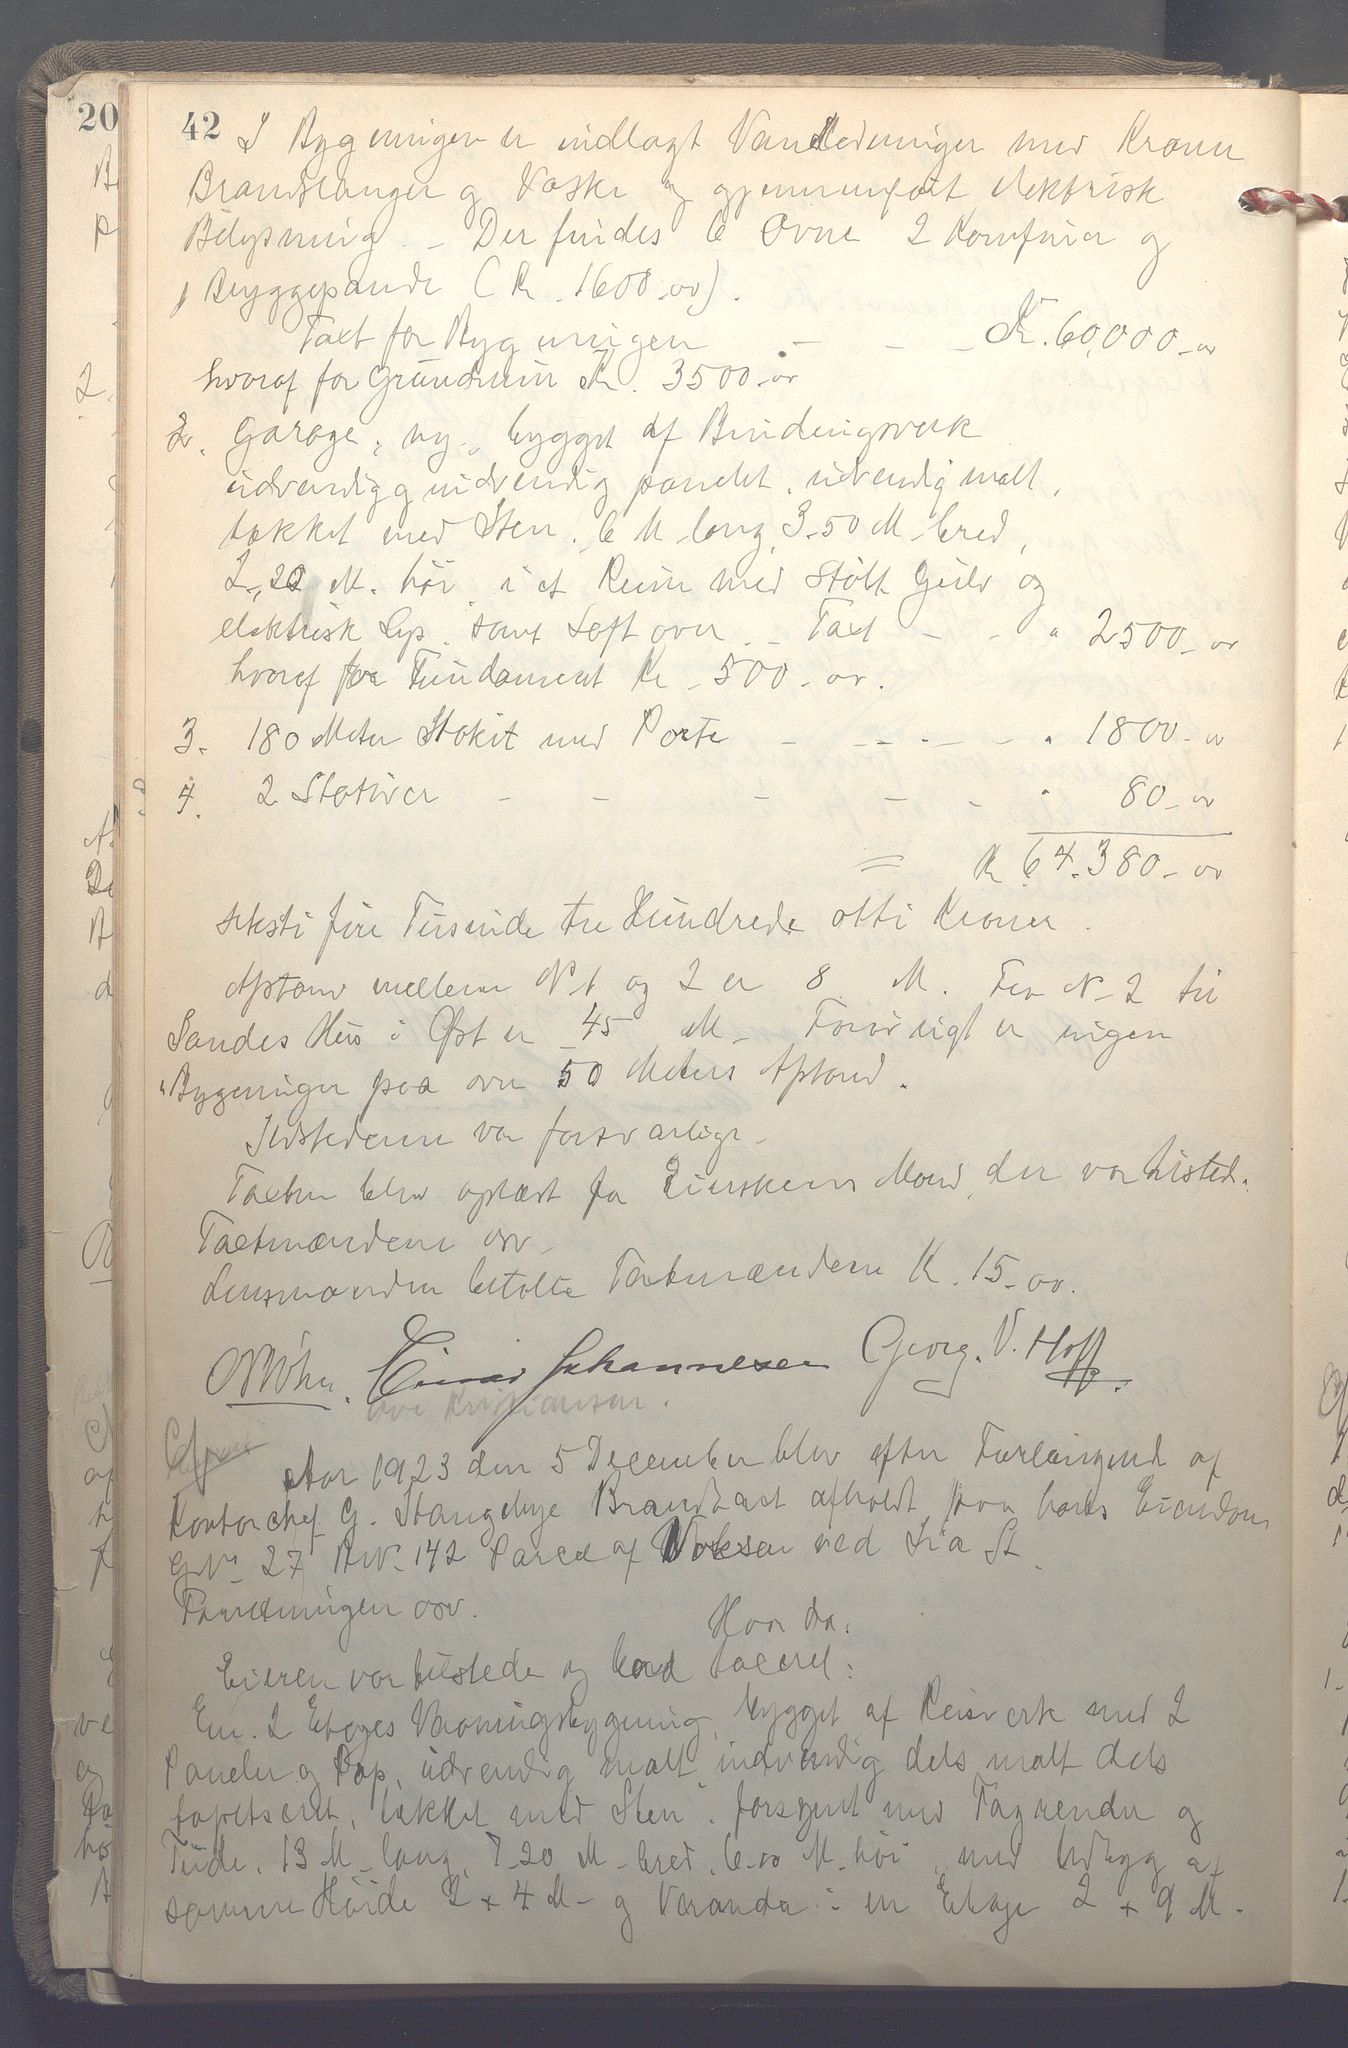 42
I Bygningen er indlagt Vandledninger med Kraner
Brandslanger og Vaske og gjennemført elektrisk
Belysning. - Der findes 6 Ovne 2 Komfurer og
1 Bryggepande (Kr. 1600.00).
Taxt for Bygningen - - - Kr. 60,000.00
hvoraf for Grundmur Kr. 3500.00
2. Garage, ny, bygget af Bindingsverk
udvendig og indvendig panelet, udvendig malt,
tækket med Sten. 6 M lang, 3.50 M bred,
2.22 M. høi i et Rum med Støbt Gulv og
elektrisk Lys samt Loft over. - Taxt - - " 2500.00
hvoraf for Fundament Kr 500.00.
3. 180 Meter Stakit med Porte - - - - " 1800.00
4. 2 Stativer - - - - - " 80.00
= Kr 64.380.00
seksti fire Tusinde tre Hundrede otti Kroner.
Afstand mellem No 1 og 2 er 8 M. Fra No 2 til
Sandes Hus i Øst er 45 M. Forøvrigt er ingen
Bygninger paa over 50 Meters Afstand.
Ildstederne var forsvarlige.
Taxten blev oplæst for Eierskens Mand, der var tilsted.
Taxtmændene osv.
Lensmanden betalte Taxtmændene Kr. 15.00.
Einar Johannesen Georg. V. Hoff.
Kristiansen.
Aar 1923 den 5 December blev efter Forlangende af
Kontorchef G. Stangebye Brandtaxt afholdt paa hans Eiendom
GNr. 27 BNr. 142 Parcel af Voksen ved Lia St.
Forretningen osv.
Hvor da:
Eieren var tilstede og lod taxeret:
En 2 Etages Vaaningsbygning, bygget af Reisverk med 2
Paneler og Pap, udvendig malt indvendig dels malt dels
tapetseret, tækket med Sten, forsynet med Tagrender og
13 M. lang, 7.20 M. bred, 6.00 M. høi, med Udbyg af
samme Høide 2 x 4 M. og Veranda i en Etage 2 x 9 M.